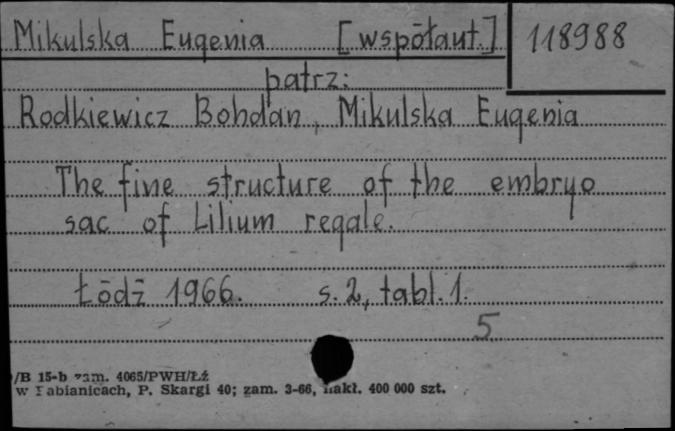 Mikulska Eugenia [współaut.] 118988
patrz:
Rodkiewicz Bohdan, Mikulska Eugenia
The fine structure of the embryo
sac of Lilium regale.
Łódź 1966. s. 2, tabl. 1.
5
/B 15-b zam. 4065/PWH/Łź
w Pabianicach, P. Skargi 40; zam. 3-66, nakł. 400 000 szt.